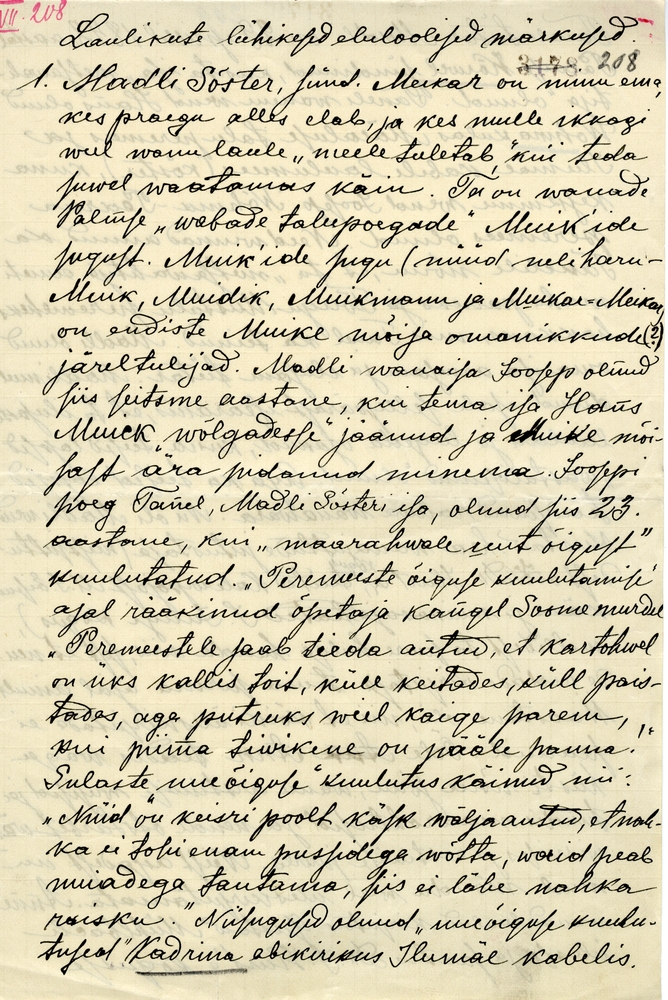 VII. 208
Laulikute lühikesed eluloolised märkused.
3178 208
1. Madli Sõster, sünd. Meikar on minu ema,
kes praegu alles elab, ja kes mulle ikkagi
weel wanu laule „meele tuletab", kui teda
suwel waatamas käin. Ta on wanade
Palmse „wabade talupoegade" Muik'ide
sugust. Muik'ide sugu (nüüd neli haru-
Muik, Muidik, Muikmann ja Muikar-Meikar)
on endiste Muike mõisa omanikkude (?)
järeltulijad. Madli wanaisa Joosep olnud
siis seitsme aastane, kui tema isa Hans
Muick „wõlgadesse" jäänud ja Muike mõi-
sast ära pidanud minema. Joosepi
poeg Tanel, Madli Sösteri isa, olnud siis 23.
aastane, kui „maarahwale uut õigust"
kuulutatud. „Peremeeste õiguse kuulutamise"
ajal rääkinud õpetaja kangel Soome murdel
„Peremeestele saab teeda antud, et kartohwel
on üks kallis toit, küll keitades, küll pais-
tades, aga putruks weel kaige parem,
kui piima tiwikene on pääle panna!"
Sulaste „uue õiguse" kuulutus käinud nii:
„Nüüd on keisri poolt käsk wälja antud, et nah-
ka ei tohi enam pussidega wõtta, waid peab
nuiadega tautama, siis ei lähe nahka
raisku." Niisugused olnud „uue õiguse kuulu-
tused" Kadrina abikirikus Ilumäe kabelis.